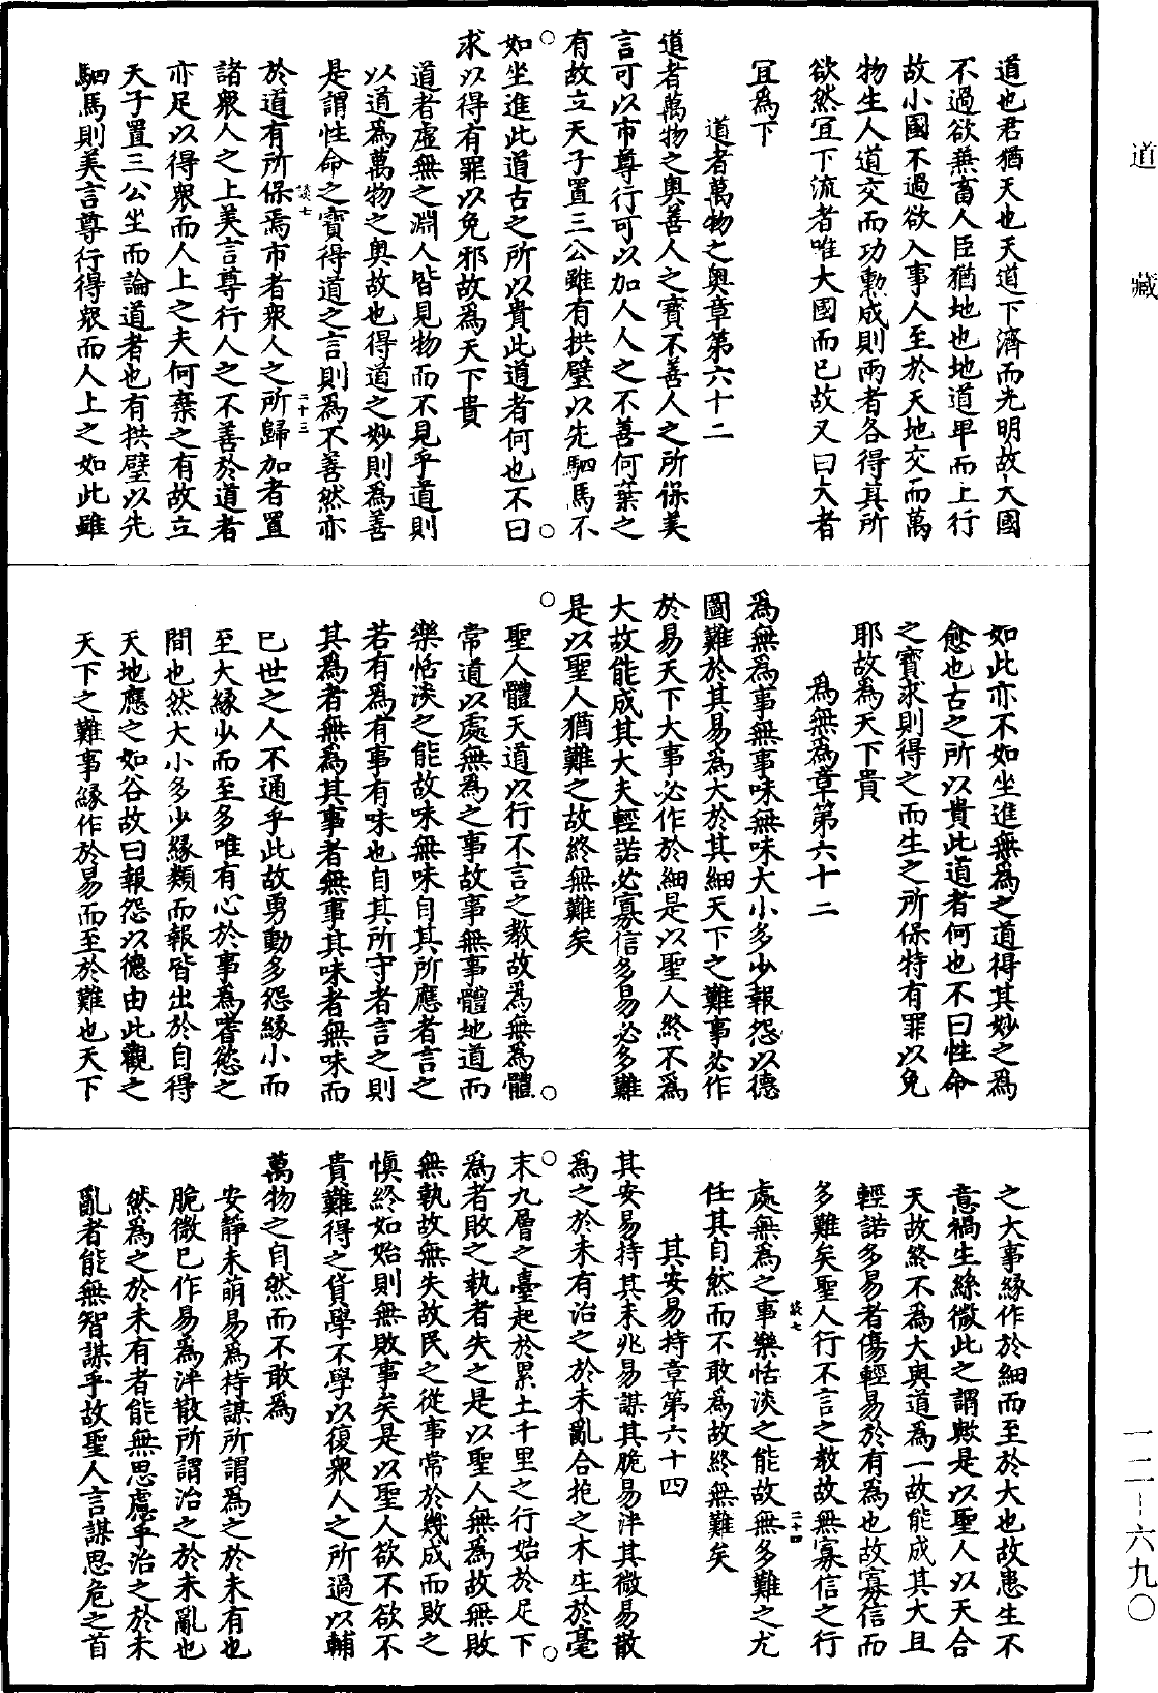 道藏
道也君猶天也天道下濟而光明故大國
不過欲蕪畜人臣猶地也地道卑而上行
故小國不過欲入事人至於天地交而萬
物生人道交而功勲成則兩者各得其所
欲然宜下流者唯大國而已故又曰大者
宜為下
道者萬物之奥章第六十二
道者萬物之奥善人之寳不善人之所保美
言可以市尊行可以加人人之不善何棄之
有故立天子置三公雖有拱璧以先駟馬不
如坐進此道古之所以貴此道者何也不曰
求以得有罪以免邪故為天下貴
道者虛無之淵人皆見物而不見乎道則
以道為萬物之奥故也得道之妙則為善
是謂性命之寳得道之言則為不善然亦
談七 二十三
於道有所保焉市者衆人之所歸加者置
諸衆人之上美言尊行人之不善於道者
亦足以得衆而人上之夫何棄之有故立
天子置三公坐而論道者也有拱璧以先
駟馬則美言尊行得衆而人上之如此雖
如此亦不如坐進無為之道得其妙之為
愈也古之所以貴此道者何也不曰性命
之寳求則得之而生之所保特有罪以免
耶故為天下貴
為無為章第六十二
為無為事無事味無味大小多少報怨以德
圖難於其易為大於其細天下之難事必作
於易天下大事必作於細是以聖人終不為
大故能成其大夫輕諾必寡信多易必多難
是以聖人猶難之故終無難矣
聖人體天道以行不言之教故為無為體
常道以處無為之事故事無事體地道而
樂恬淡之能故味無味自其所應者言之
若有為有事有味也自其所守者言之則
其為者無為其事者無事其味者無味而
已世之人不通乎此故勇動多怨緣小而
至大緣少而至多唯有心於事為嗜慾之
間也然大小多少緣類而報皆出於自得
天地應之如谷故曰報怨以德由此觀之
天下之難事緣作於易而至於難也天下
之大事緣作於細而至於大也故患生不
意禍生絲微此之謂歟是以聖人以天合
天故終不為大與道為一故能成其大且
輕諾多易者傷輕易於有為也故寡信而
多難矣聖人行不言之教故無寡信之行
談七 二十四
處無為之事樂恬淡之能故無多難之尤
任其自然而不敢為故終無難矣
其安易持章第六十四
其安易持其未兆易謀其脆易泮其微易散
為之於未有治之於未亂合抱之木生於毫
末九層之臺起於累土千里之行始於足下
為者敗之執者失之是以聖人無為故無敗
無執故無失故民之從事常於幾成而敗之
慎終如始則無敗事矣是以聖人欲不欲不
貴難得之貨學不學以復衆人之所過以輔
萬物之自然而不敢為
安靜未萌易為持謀所謂為之於未有也
脆微已作易為泮散所謂治之於未亂也
然為之於未有者能無思慮乎治之於未
亂者能無智謀乎故聖人言謀思危之首
一二-六九〇